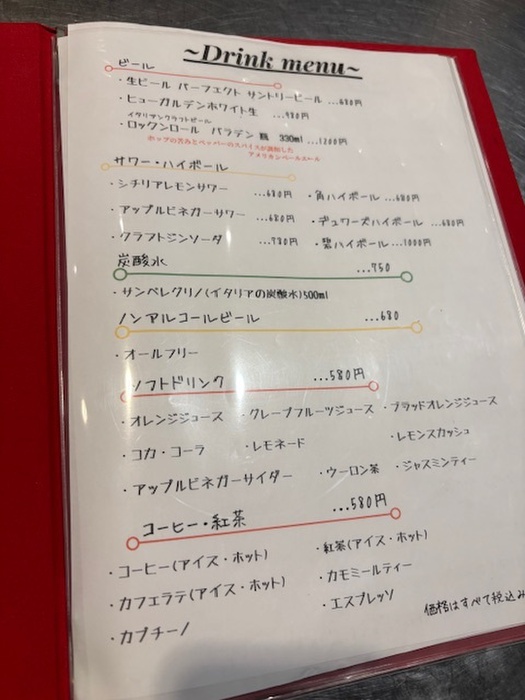 ~Drink menu~
ビール
・生ビール パーフェクト サントリービール ...680円
・ヒューガルデンホワイト生 ...980円
イタリアンクラフトビール
・ロックンロール バラデン 瓶 330ml ...1200円
ホップの苦みとペッパーのスパイスが調和した
アメリカンペールエール
サワー・ハイボール
・シチリアレモンサワー ...680円 ・角ハイボール ...680円
・アップルビネガーサワー ...680円 ・デュワーズハイボール ...680円
・クラフトジンソーダ ...780円 ・碧ハイボール ...1000円
炭酸水 ...750
・サンペレグリノ(イタリアの炭酸水)500ml
ノンアルコールビール ...680
・オールフリー
ソフトドリンク ...580円
・オレンジジュース ・グレープフルーツジュース ・ブラッドオレンジジュース
・コカ・コーラ ・レモネード ・レモンスカッシュ
・アップルビネガーサイダー ・ウーロン茶 ・ジャスミンティー
コーヒー・紅茶 ...580円
・コーヒー(アイス・ホット) ・紅茶(アイス・ホット)
・カフェラテ(アイス・ホット) ・カモミールティー
・カプチーノ ・エスプレッソ
価格はすべて税込み